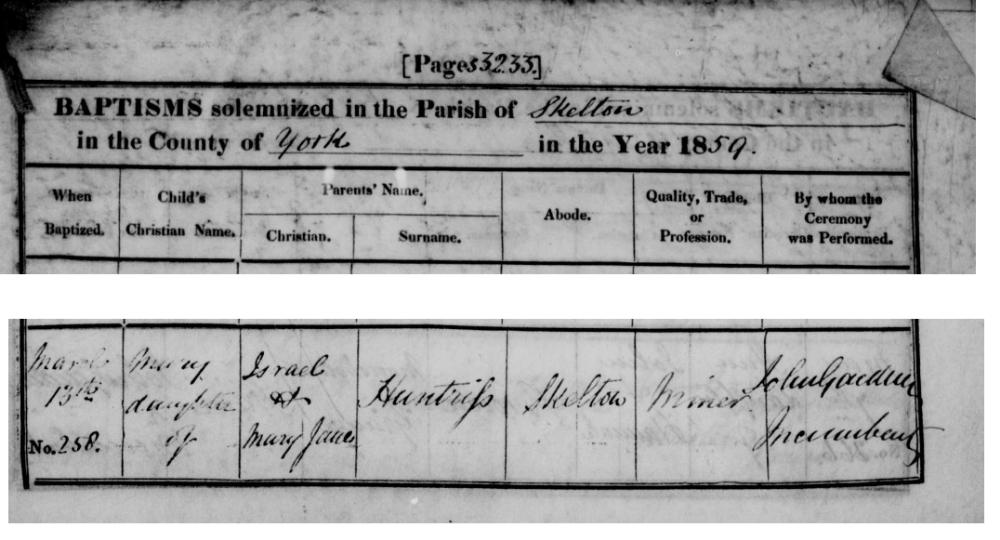 [Pages 32 33]
BAPTISMS solemnized in the Parish of Skelton
in the County of York in the Year 1859.
When Baptized.
Child's Christian Name.
Parents' Name.
Christian.
Surname.
Abode.
Quality, Trade, or Profession.
By whom the Ceremony was Performed.
March 13th
No. 258.
Mary daughter of
Israel & Mary Jane
Huntriſs
Skelton
Miner
John Gardner
Incumbent